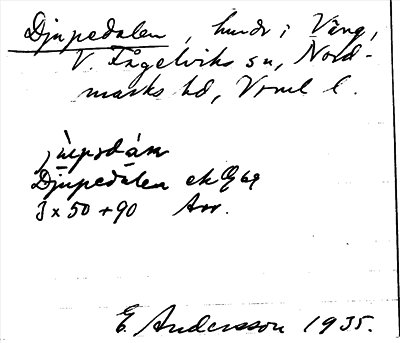 Djupedalen, hmdr i Väng,
V. Fågelviks sn, Nord-
marks hd, Vrml l.
Djupedalen ek
3 x 50 + 90 Avr.
E. Andersson 1935.